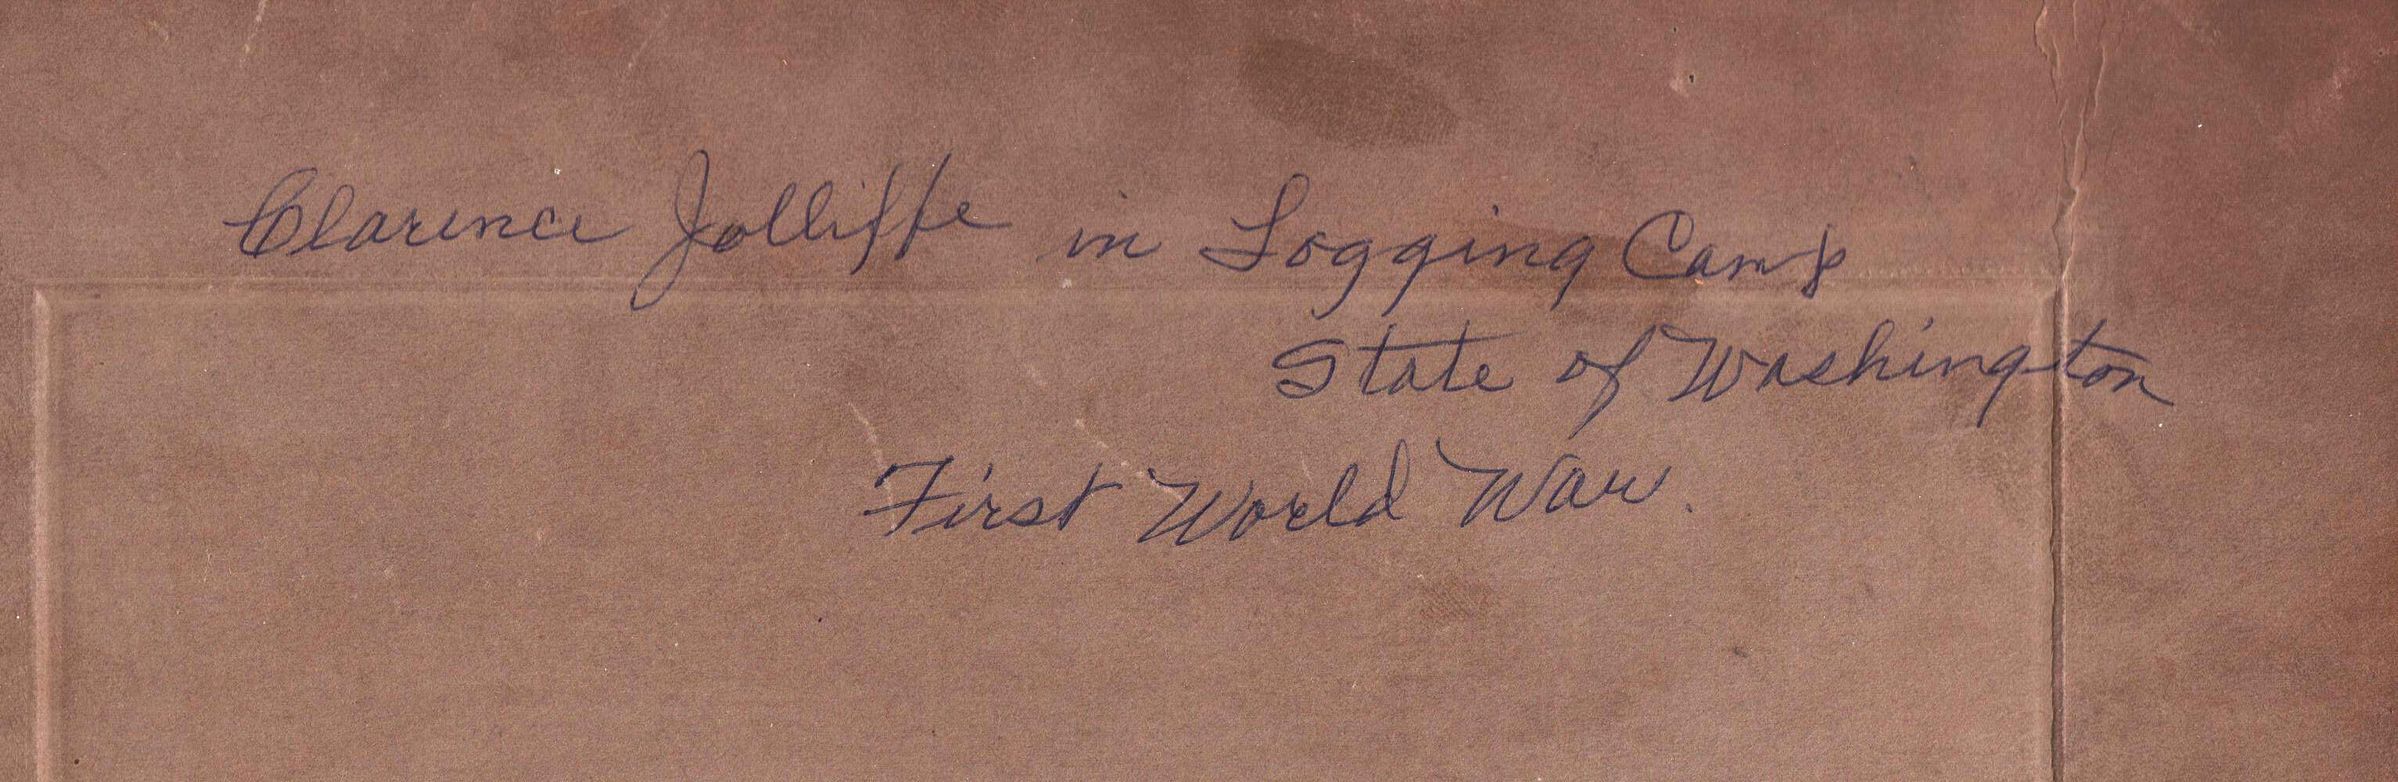 Clarence Jolliffe in Logging Camp
State of Washington
First World War.